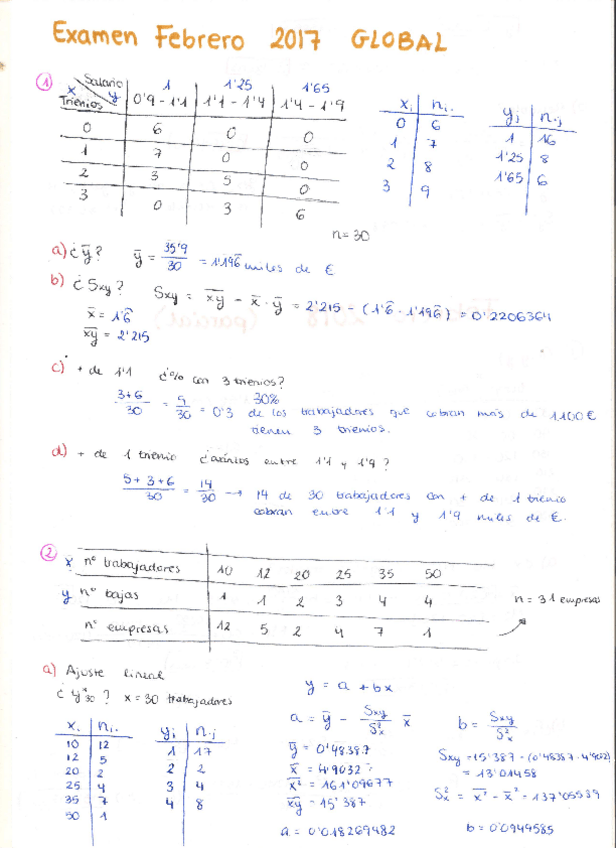 Examen Febrero 2017 GLOBAL
① Salario 1 1'25 1'65
x y
Trienios 0'9 - 1'1 1'1 - 1'4 1'4 - 1'9
0 6 0 0
1 7 0 0
2 3 5 0
3 0 3 6
n = 30
xi ni.
0 6
1 7
2 8
3 9
yj n.j
1 16
1'25 8
1'65 6
a) ¿ȳ? ȳ = 35'9/30 = 1'196 miles de €
b) ¿Sxy? Sxy = x̄y̅ - x̄ · ȳ = 2'215 - (1'6 · 1'196) = 0'2206364
x̄ = 1'6
x̄y̅ = 2'215
c) + de 1'1 ¿% con 3 trienios?
3+6/30 = 9/30 = 0'3 30% de los trabajadores que cobran más de 1100€
tienen 3 trienios.
d) + de 1 trienio ¿cuántos entre 1'1 y 1'9?
5+3+6/30 = 14/30 → 14 de 30 trabajadores con + de 1 trienio
cobran entre 1'1 y 1'9 miles de €.
② x nº trabajadores 10 12 20 25 35 50
y nº bajas 1 1 2 3 4 4
nº empresas 12 5 2 4 7 1
n = 31 empresas
a) Ajuste lineal
¿y*30? x = 30 trabajadores
xi ni.
10 12
12 5
20 2
25 4
35 7
50 1
yj n.j
1 17
2 2
3 4
4 8
y = a + bx
a = ȳ - Sxy/S²x x̄
b = Sxy/S²x
ȳ = 0'48387
x̄ = 4'9032
x̄² = 161'09677
x̄y̅ = 15'387
a = 0'018269482
Sxy = 15'387 - (0'48387 · 4'9032)
= 13'01458
S²x = x̄² - x̄² = 137'05539
b = 0'0949585